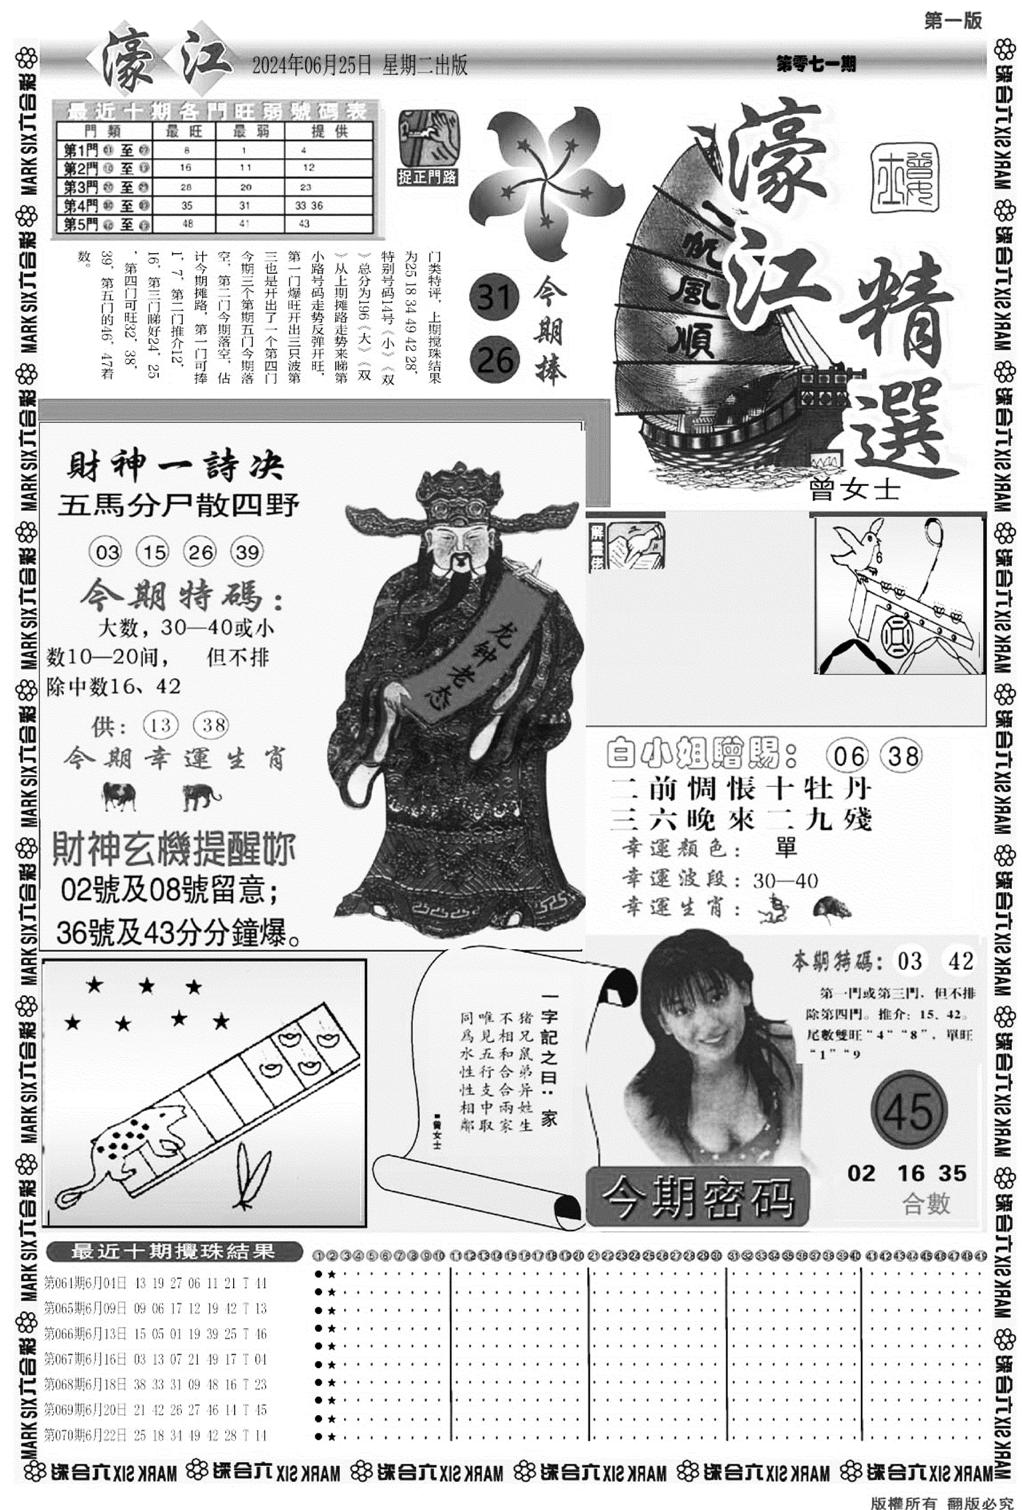 第一版
濠江
2024年06月25日 星期二出版
第零七一期
最近十期各門旺弱號碼表
門類 最旺 最弱 提供
第1門 01 至 09 8 1 4
第2門 10 至 19 16 11 12
第3門 20 至 29 28 20 23
第4門 30 至 39 35 31 33 36
第5門 40 至 49 48 41 43
捉正門路
门类特评，上期搅珠结果
为25 18 34 49 42 28，
特别号码14号《小》《双
》总分为196《大》《双
》从上期摊路走势来睇第
小路号码走势反弹开旺，
第一门爆旺开出三只波第
三也是开出了一个第四门
今期三个第期五门今期落
空，第二门今期落空，估
计今期摊路，第一门可捧
1，7，第二门推介12，
16，第三门睇好24，25
，第四门可旺32，38，
39，第五门的46，47着
数。
31 26
今期捧
一帆風順
濠江
精選
曾女士
財神一詩决
五馬分尸散四野
03 15 26 39
今期特碼：
大数，30—40或小
数10—20间， 但不排
除中数16、42
供：13 38
今期幸運生肖
財神玄機提醒妳
02號及08號留意；
36號及43分分鐘爆。
龙钟老态
白小姐贈賜：06 38
二前惆悵十牡丹
三六晚來二九殘
幸運顏色： 單
幸運波段：30—40
幸運生肖：
一字記之曰：家
猪兄鼠弟异姓生
不相和合合兩家
唯見五行支中取
同爲水性性相鄰
■曾女士
本期特碼：03 42
第一門或第三門，但不排
除第四門。推介：15、42。
尾數雙旺“4”“8”，單旺
“1”“9
45
02 16 35
合數
今期密码
最近十期攪珠結果
①②③④⑤⑥⑦⑧⑨⑩⑪⑫⑬⑭⑮⑯⑰⑱⑲⑳㉑㉒㉓㉔㉕㉖㉗㉘㉙㉚㉛㉜㉝㉞㉟㊱㊲㊳㊴㊵㊶㊷㊸㊹㊺㊻㊼㊽㊾
第064期6月04日 43 19 27 06 11 21 T 44
第065期6月09日 09 06 17 12 19 42 T 13
第066期6月13日 15 05 01 19 39 25 T 46
第067期6月16日 03 13 07 21 49 17 T 04
第068期6月18日 38 33 31 09 48 16 T 23
第069期6月20日 21 42 26 27 46 14 T 45
第070期6月22日 25 18 34 49 42 28 T 14
MARK SIX 六合彩
版權所有 翻版必究